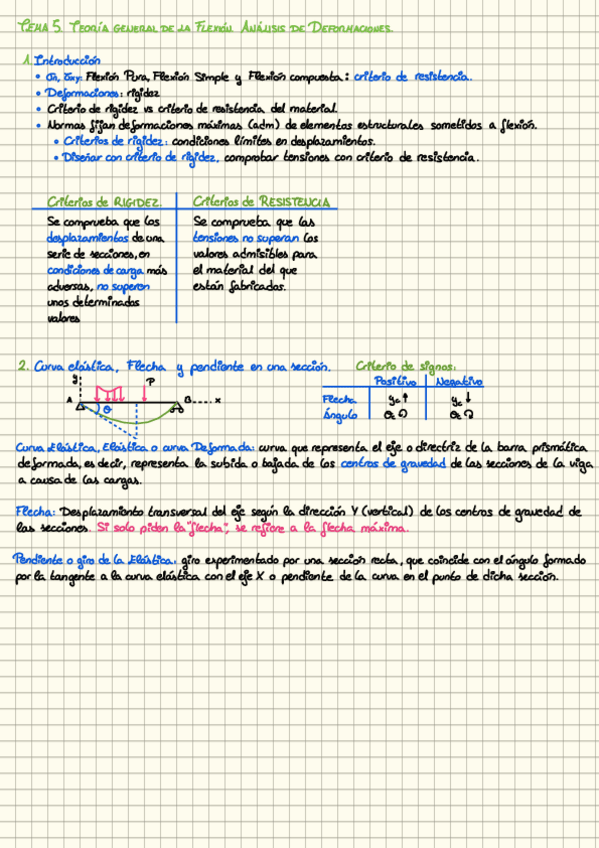 TEMA 5. TEORÍA GENERAL DE LA FLEXIÓN. ANÁLISIS DE DEFORMACIONES.
1. Introducción
• σx, τxy: Flexión Pura, Flexión Simple y Flexión compuesta: criterio de resistencia.
• Deformaciones: rigidez
• Criterio de rigidez vs criterio de resistencia del material.
• Normas fijan deformaciones máximas (adm) de elementos estructurales sometidos a flexión.
• Criterios de rigidez: condiciones límites en desplazamientos.
• Diseñar con criterio de rigidez, comprobar tensiones con criterio de resistencia.
Criterios de RIGIDEZ.
Se comprueba que los
desplazamientos de una
serie de secciones, en
condiciones de carga más
adversas, no superen
unos determinados
valores
Criterios de RESISTENCIA
Se comprueba que las
tensiones no superan los
valores admisibles para
el material del que
están fabricados.
2. Curva elástica, Flecha y pendiente en una sección.
y
P
A
B
x
θ
Criterio de signos:
Positivo Negativo
Flecha yc↑ yc↓
Ángulo θc↺ θc↻
Curva Elástica, Elástica o curva Deformada: curva que representa el eje o directriz de la barra prismática
deformada, es decir, representa la subida o bajada de los centros de gravedad de las secciones de la viga
a causa de las cargas.
Flecha: Desplazamiento transversal del eje según la dirección Y (vertical) de los centros de gravedad de
las secciones. Si solo piden la "flecha", se refiere a la flecha máxima.
Pendiente o giro de la Elástica: giro experimentado por una sección recta, que coincide con el ángulo formado
por la tangente a la curva elástica con el eje X o pendiente de la curva en el punto de dicha sección.